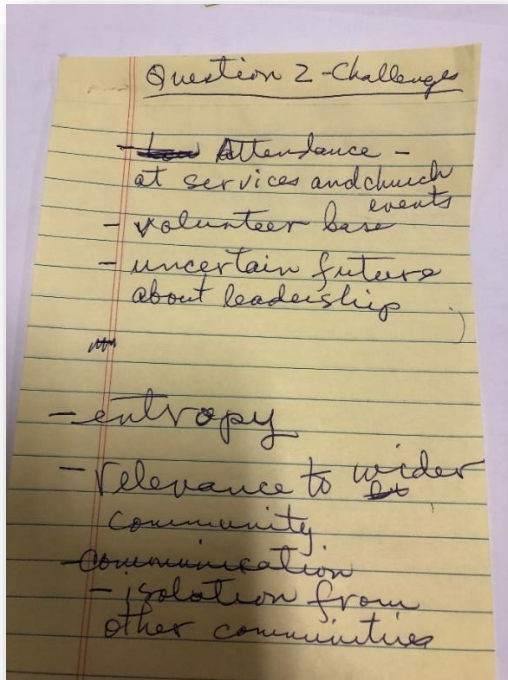 Question 2 - Challenges
- Attendance -
at services and church
events
- volunteer base
- uncertain future
about leadership
- entropy
- relevance to wider
community
- communication
- isolation from
other communities